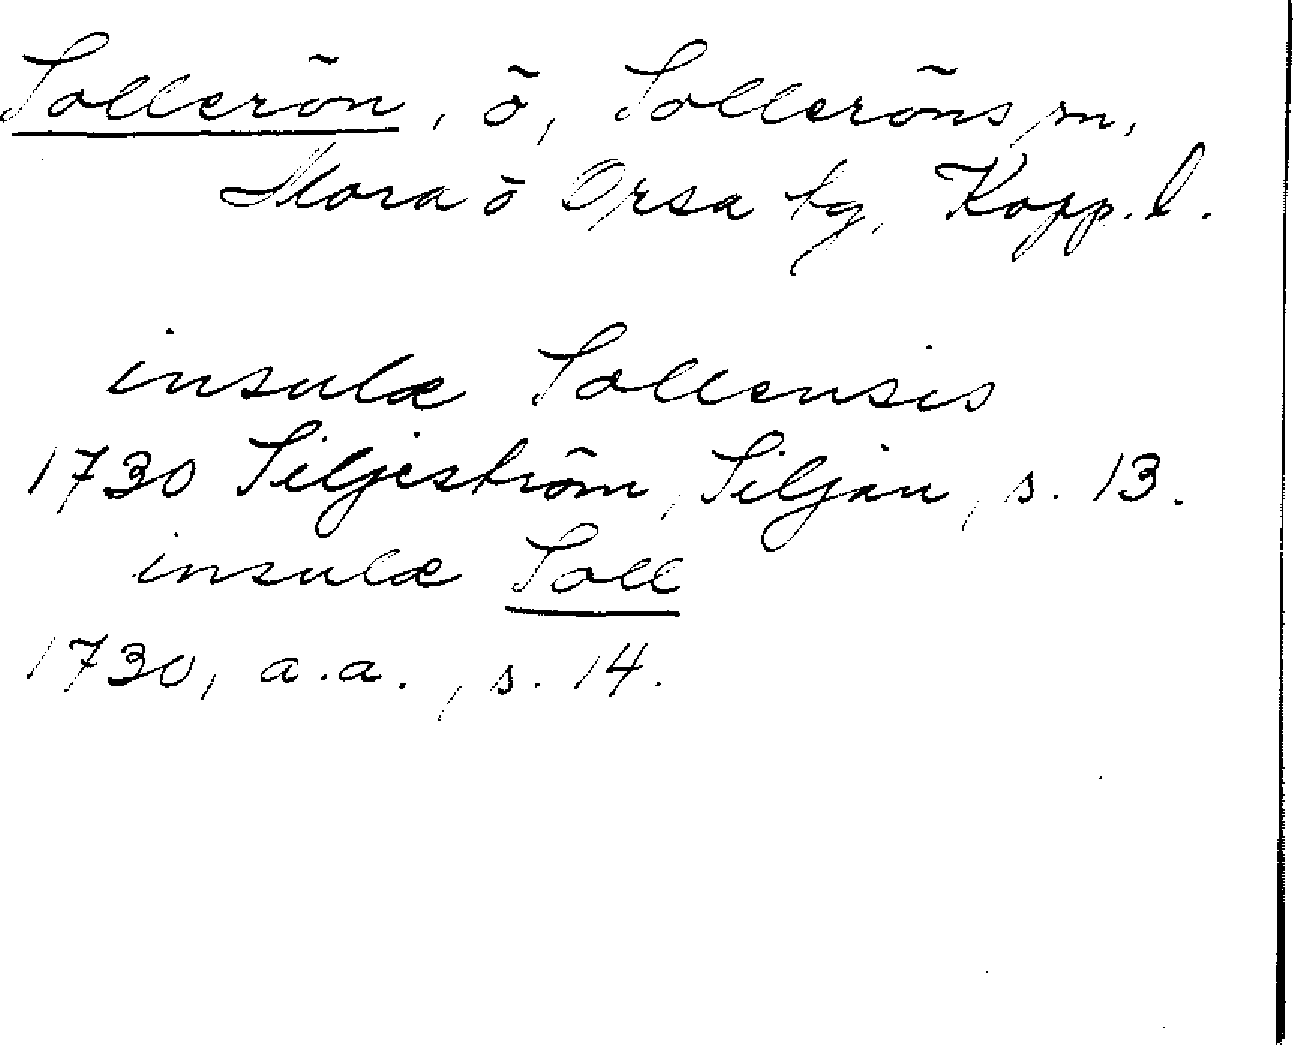 Sollerön, ö, Solleröns sn,
Mora o Orsa tg, Kopp. l.
insulæ Sollensis
1730 Siljeström, Siljan, s. 13.
insulæ Soll
1730, a.a., s. 14.